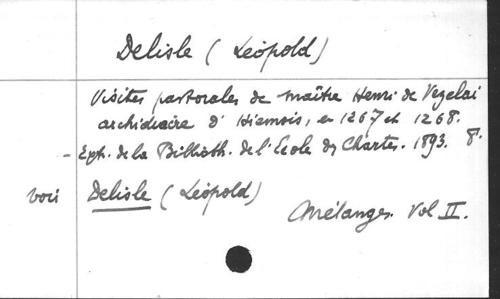 Delisle (Léopold)
Visites pastorales de maître Henri de Vezelai
archidiacre d'Hiemois, en 1267 et 1268.
- Ext. de la Biblioth. de l'Ecole des Chartes. 1893. 8°.
voir Delisle (Léopold)
Mélanges. Vol II.